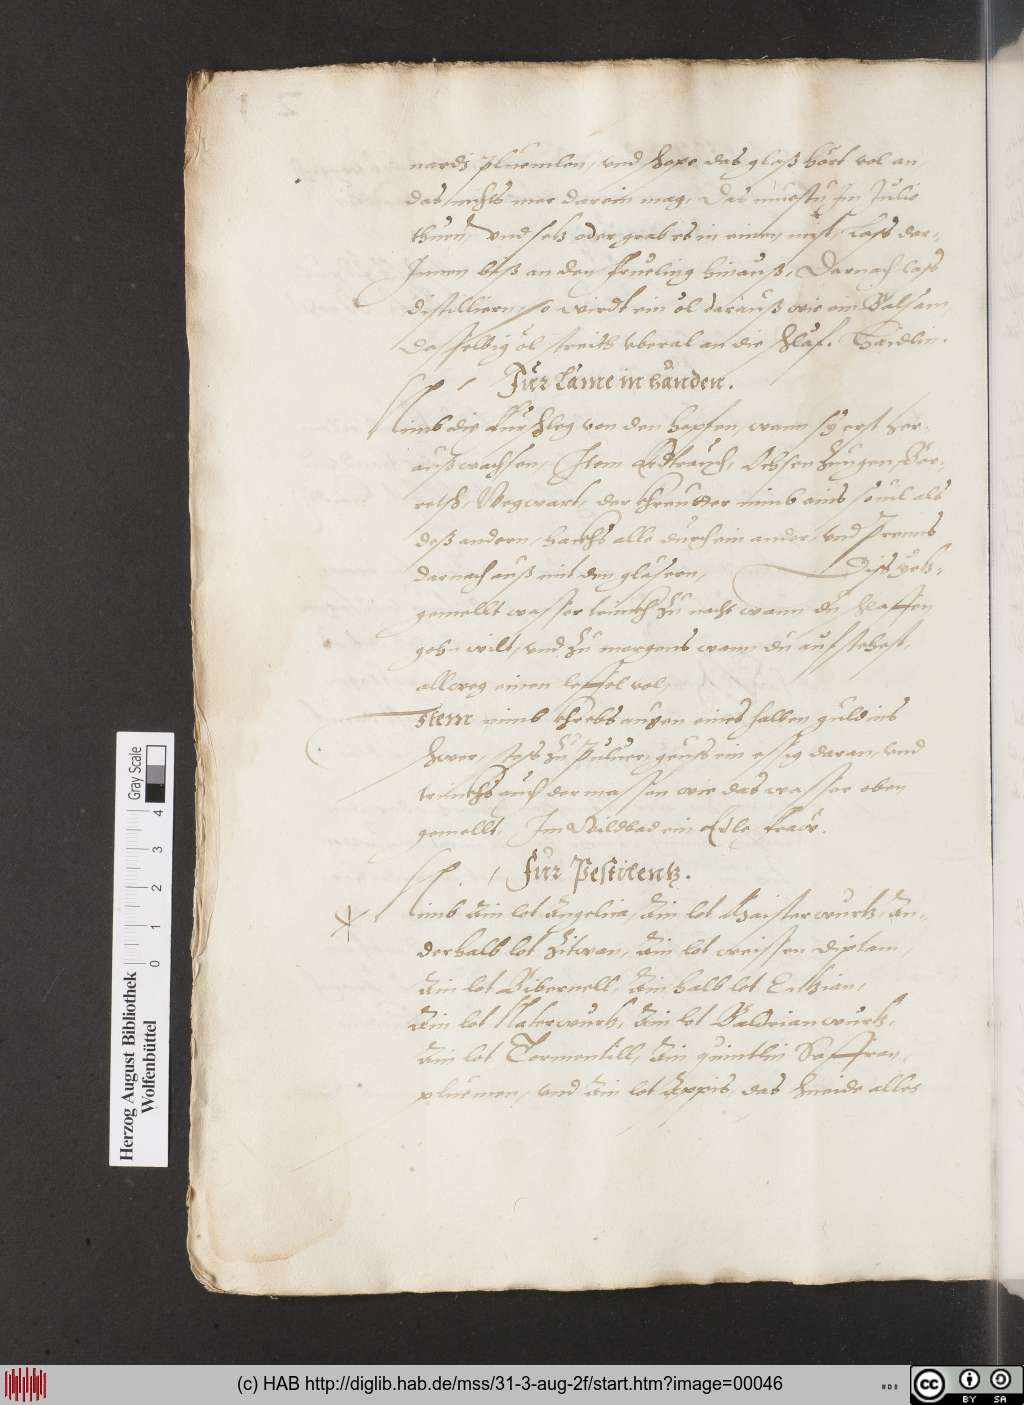 nards pluemlen, und stopf das glaß hört vol an,
das nichts mer darein mag, Das muestu Im Julio
thuen, Und setz oder grab es in einen mist, Lass dar-
Innen biß an den frueling hinauß, Darnach lass
distilliern so wirdt ein öl darauß wie ein Balsam
dasselbig öl streich überal an die schlaf.
Für Läme in händen.
Nimb die von den hopfen, wann sy erst her-
auß wachsen, Item Erdtrauch, Ochsen Zungen, Bor-
retsch, Wegwart, der khreutter nimb ains souil als
deß andern, hackhs alle durch ein ander, und prenns
darnach auß mit den gläsern, Diss yetz-
gemellt wasser trinckh zu nacht wann du schlaffen
gehn wilt, und zu morgens wann du auf stehest,
allweg einen leffel vol,
Item nimb khrebs augen eines halben guldins
schwer, stoß zu Puluer, geuß ein essig daran, und
trinckhs auch dermassen wie das wasser oben
gemellt. Im Wildbad ein Edle fraw.
Für Pestilentz.
Nimb Ain lot Angelica, Ain lot Maisterwurtz, An-
derhalb lot Zitwan, Ain lot weissen diptam,
Ain lot Bibernell, Ain halb lot Entzian,
Ain lot Naterwurtz, Ain lot Baldrianwurtz,
Ain lot Tormentill, Ain quintlin Saffran,
pluemen, und Ain lot das schneide alles
Herzog August Bibliothek
Wolfenbüttel
0 1 2 3 4 Gray Scale
(c) HAB http://diglib.hab.de/mss/31-3-aug-2f/start.htm?image=00046
cc BY SA